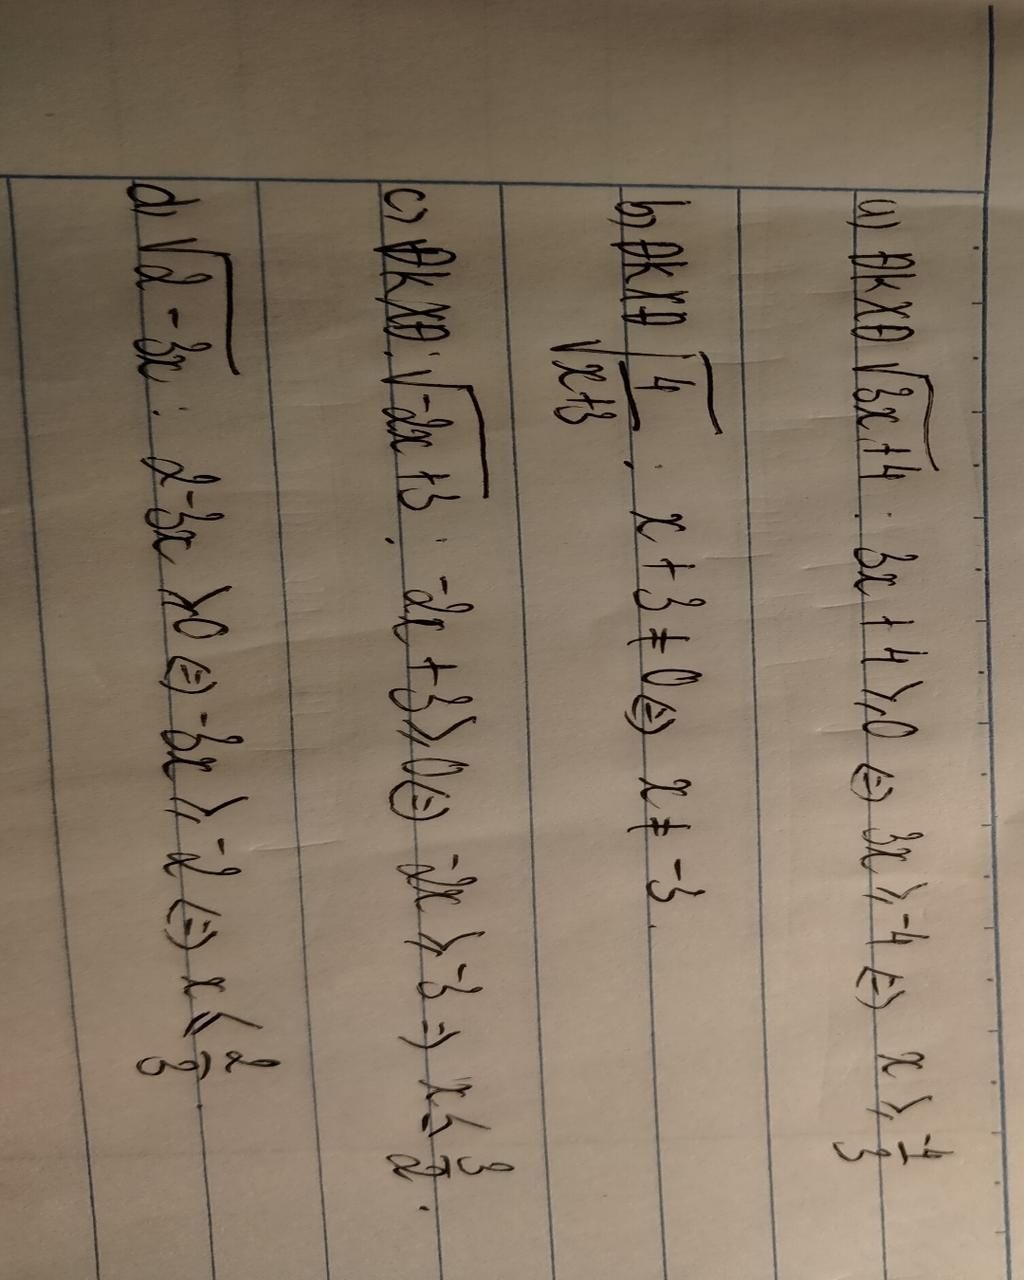 a) ĐKXĐ √3x+4 : 3x + 4 ⩾ 0 (=) 3x ⩾ -4 (=) x ⩾ -4/3
b) ĐKXĐ √4/√x+3 : x + 3 ≠ 0 (=) x ≠ -3.
c) ĐKXĐ: √-2x+3 : -2x + 3 ⩾ 0 (=) -2x ⩾ -3 =) x ≤ 3/2.
d) √2-3x : 2-3x ⩾ 0 (=) -3x ⩾ -2 (=) x ⩽ 2/3.